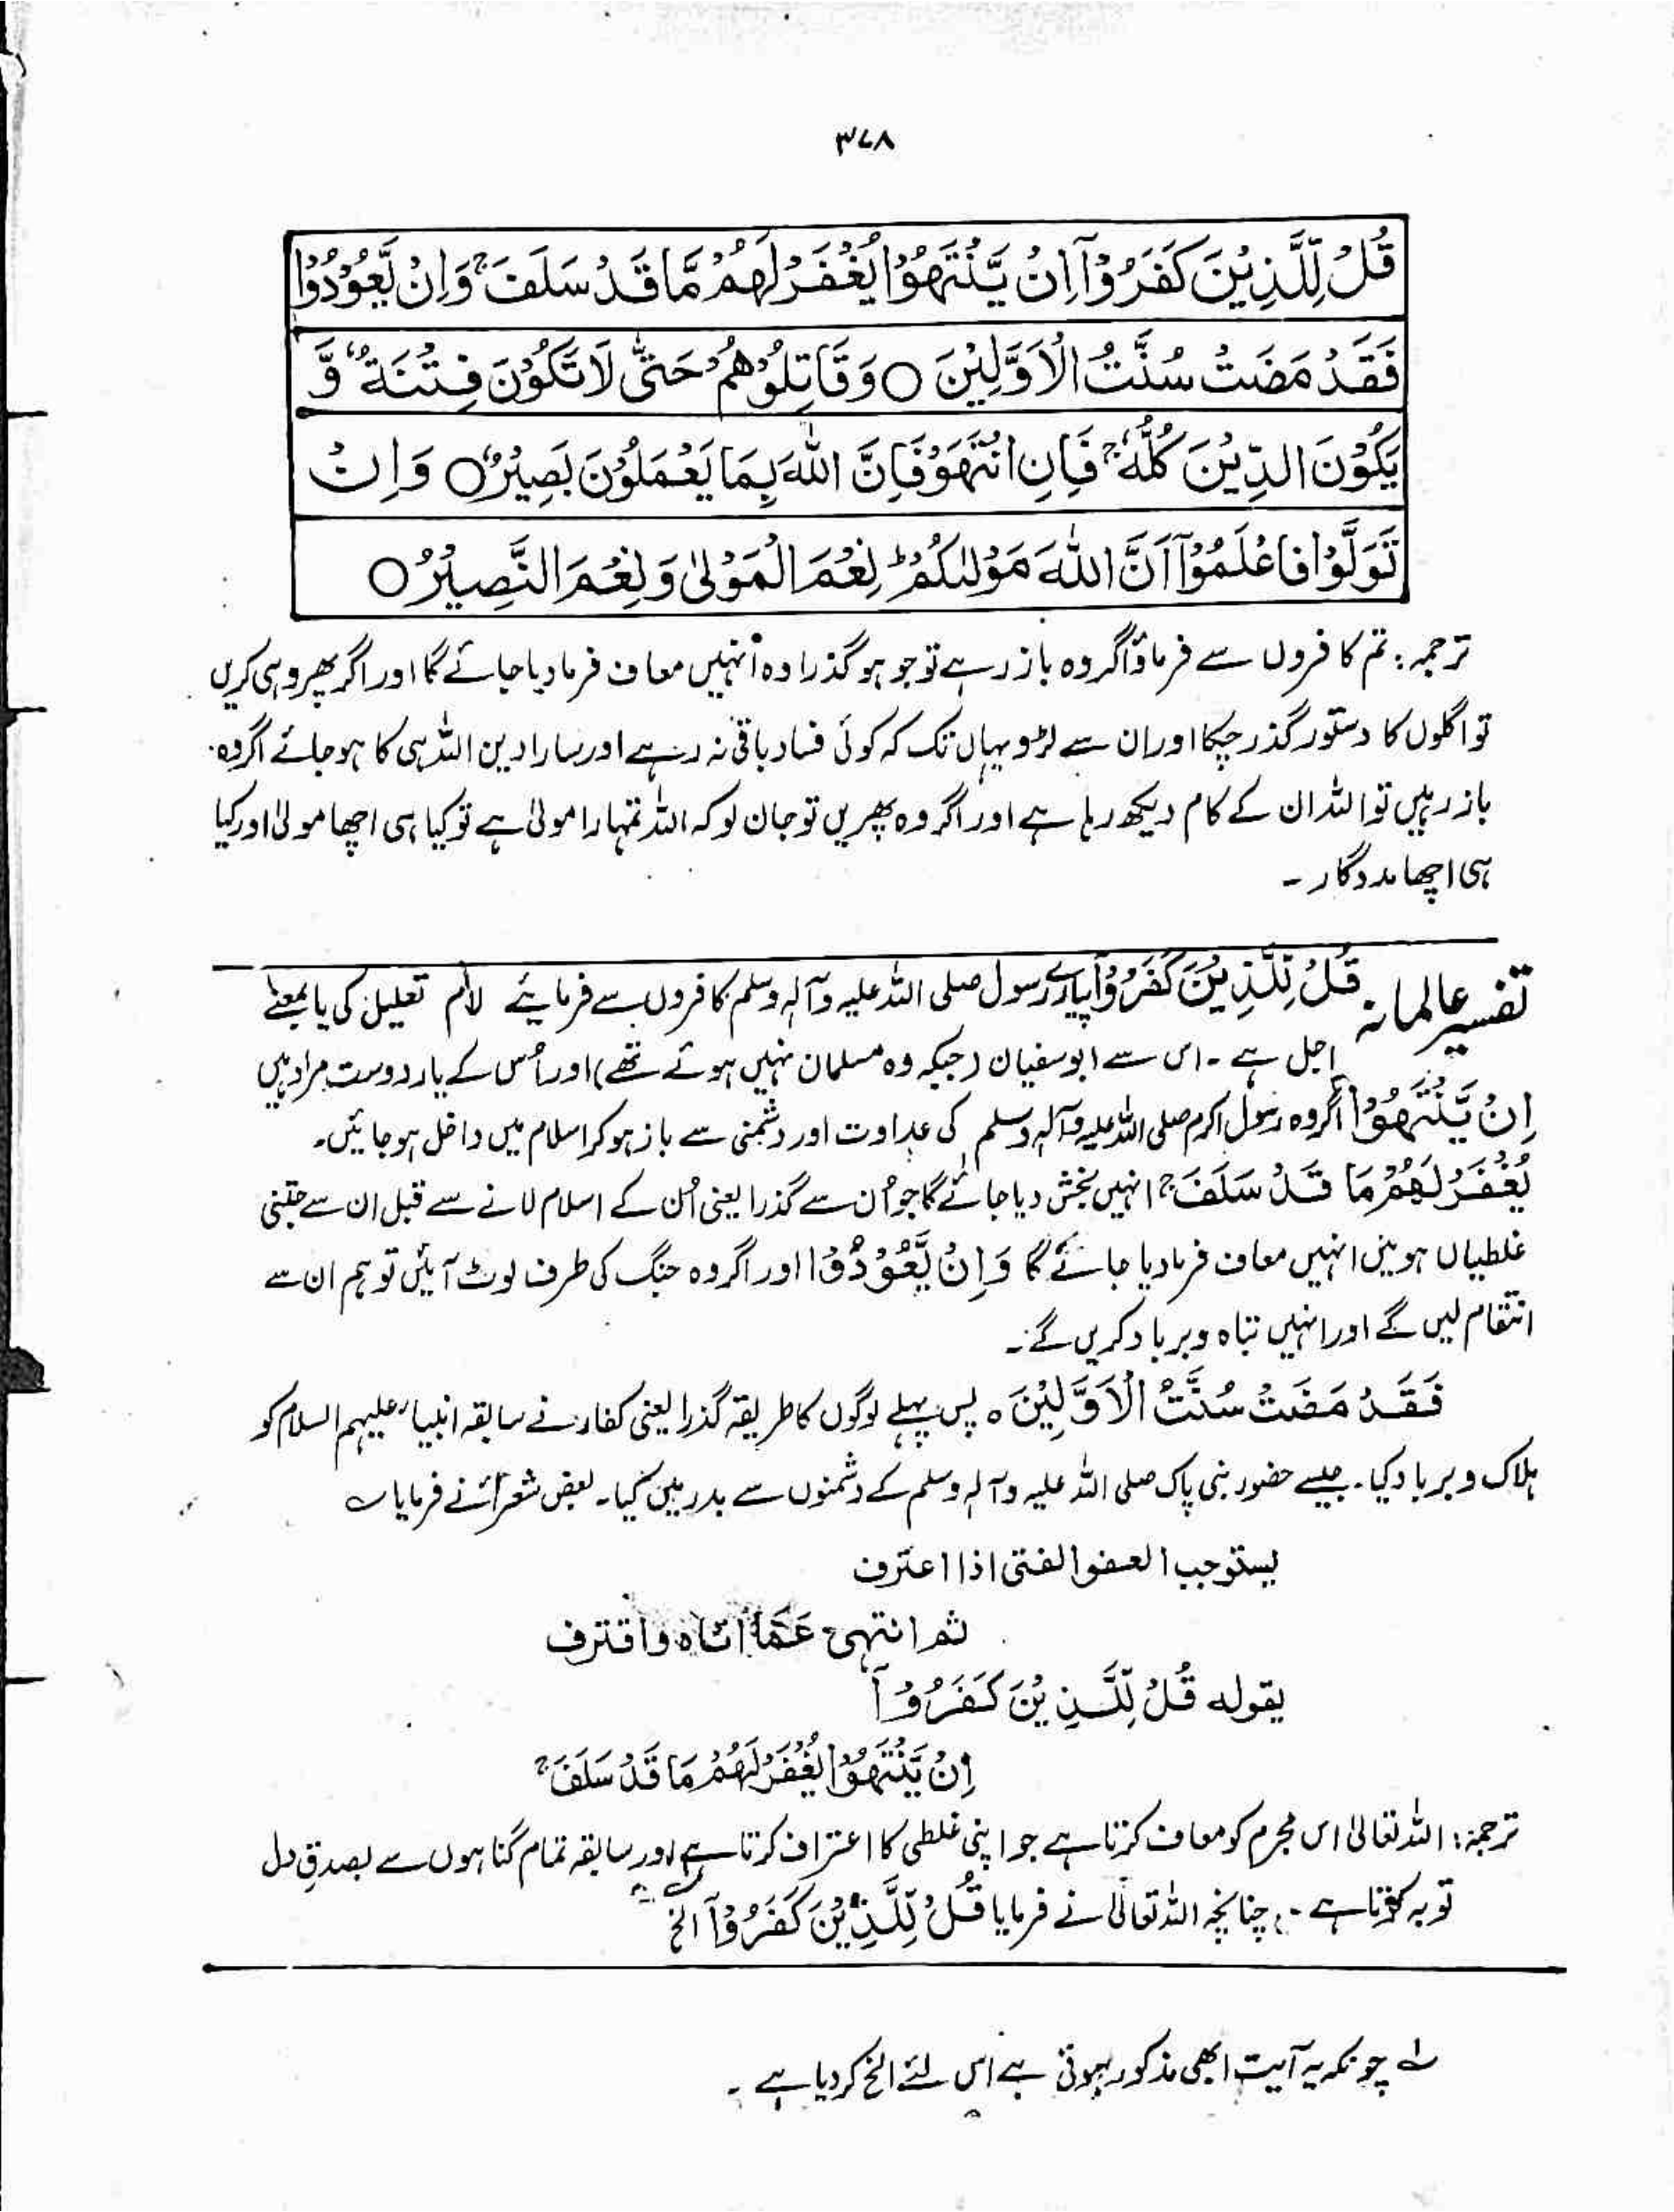 ۳۷۸
قُلْ لِّلَّذِيْنَ كَفَرُوْٓا اِنْ يَّنْتَهُوْا يُغْفَرْ لَهُمْ مَّا قَدْ سَلَفَ ۚ وَاِنْ يَّعُوْدُوْا
فَقَدْ مَضَتْ سُنَّتُ الْاَوَّلِيْنَ ○ وَقَاتِلُوْهُمْ حَتّٰى لَا تَكُوْنَ فِتْنَةٌ وَّ
يَكُوْنَ الدِّيْنَ كُلُّهٗ ۚ فَاِنِ انْتَهَوْ فَاِنَّ اللّٰهَ بِمَا يَعْمَلُوْنَ بَصِيْرٌ ○ وَاِنْ
تَوَلَّوْا فَاعْلَمُوْٓا اَنَّ اللّٰهَ مَوْلٰىكُمْ ؕ نِعْمَ الْمَوْلٰى وَنِعْمَ النَّصِيْرُ ○
ترجمہ: تم کافروں سے فرماؤ اگر وہ باز رہے تو جو ہو گذرا وہ اُنہیں معاف فرما دیا جائے گا اور اگر پھر وہی کریں
تو اگلوں کا دستور گذر چکا اور ان سے لڑو یہاں تک کہ کوئی فساد باقی نہ رہے اور سارا دین اللہ ہی کا ہو جائے اگر وہ
باز رہیں تو اللہ ان کے کام دیکھ رہا ہے اور اگر وہ پھریں تو جان لو کہ اللہ تمہارا مولیٰ ہے تو کیا ہی اچھا مولیٰ اور کیا
ہی اچھا مددگار ۔
تفسیر عالمانہ قُلْ لِّلَّذِيْنَ كَفَرُوْٓا پیارے رسول صلی اللہ علیہ وآلہ وسلم کافروں سے فرمایئے لام تعلیل کی یا بمعنے
اجل ہے ۔ اس سے ابوسفیان (جبکہ وہ مسلمان نہیں ہوئے تھے) اور اُس کے یار دوست مراد ہیں
اِنْ يَّنْتَهُوْا اگر وہ رسول اکرم صلی اللہ علیہ وآلہ وسلم کی عداوت اور دشمنی سے باز ہو کر اسلام میں داخل ہو جائیں۔
يُغْفَرْ لَهُمْ مَا قَدْ سَلَفَ ۚ انہیں بخش دیا جائے گا جو اُن سے گذرا یعنی اُن کے اسلام لانے سے قبل ان سے جتنی
غلطیاں ہوئیں انہیں معاف فرما دیا جائے گا وَاِنْ يَّعُوْدُوْا اور اگر وہ جنگ کی طرف لوٹ آئیں تو ہم ان سے
انتقام لیں گے اور انہیں تباہ و برباد کریں گے ۔
فَقَدْ مَضَتْ سُنَّتُ الْاَوَّلِيْنَ ہ پس پہلے لوگوں کا طریقہ گذرا یعنی کفار نے سابقہ انبیاء علیہم السلام کو
ہلاک و برباد کیا۔ جیسے حضور نبی پاک صلی اللہ علیہ وآلہ وسلم کے دشمنوں سے بدر میں کیا۔ بعض شعرائے نے فرمایا ؎
یستوجب العفو الفتی اذا اعترف
ثم انتہی عَمَّا اتاہ واقترف
یقولہ قُلْ لِّلَّذِيْنَ كَفَرُوْٓا
اِنْ يَّنْتَهُوْا يُغْفَرْ لَهُمْ مَا قَدْ سَلَفَ ۚ
ترجمہ: اللہ تعالیٰ اس مجرم کو معاف کرتا ہے جو اپنی غلطی کا اعتراف کرتا ہے اور سابقہ تمام گناہوں سے بصدقِ دل
توبہ کرتا ہے ۔ چنانچہ اللہ تعالیٰ نے فرمایا قُلْ لِّلَّذِيْنَ كَفَرُوْٓا الخ
لے چونکہ یہ آیت ابھی مذکور ہوئی ہے اس لئے الخ کر دیا ہے ۔